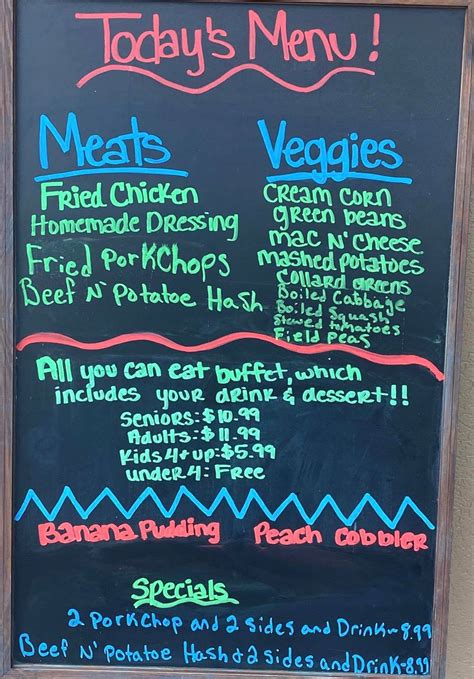 Today's Menu!
Meats
Fried Chicken
Homemade Dressing
Fried PorkChops
Beef N' Potatoe Hash
Veggies
Cream Corn
green beans
mac N' cheese
mashed potatoes
collard greens
Boiled Cabbage
Boiled Squash
Stewed tomatoes
Field peas
All you can eat buffet, which
includes your drink & dessert!!
Seniors:$10.99
Adults:$11.99
Kids 4+up:$5.99
under 4: Free
Banana Pudding Peach Cobbler
Specials
2 Porkchop and 2 sides and Drink-8.99
Beef N' Potatoe Hash + 2 Sides and Drink-8.99